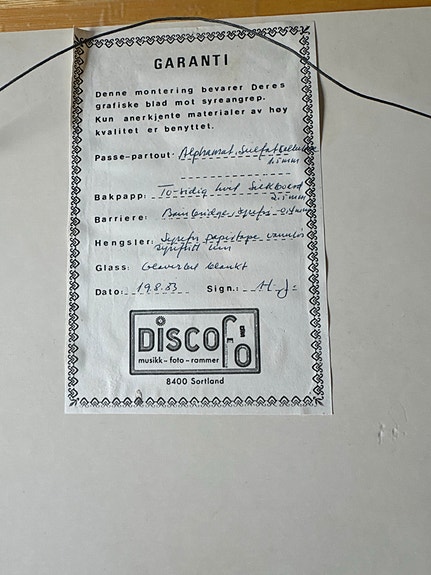 GARANTI
Denne montering bevarer Deres
grafiske blad mot syreangrep.
Kun anerkjente materialer av høy
kvalitet er benyttet.
Passe-partout: Alphamat, Sulfatcellulose
1.5 mm
Bakpapp: To-sidig hvit Silkboard
2.5 mm
Barriere: Bainbridge, syrefri
Hengsler: Syrefri papirtape vannløs
syrefritt lim
Glass: Glaverbel blankt
Dato: 19.8.83 Sign.:
DISCOFO
musikk-foto-rammer
8400 Sortland